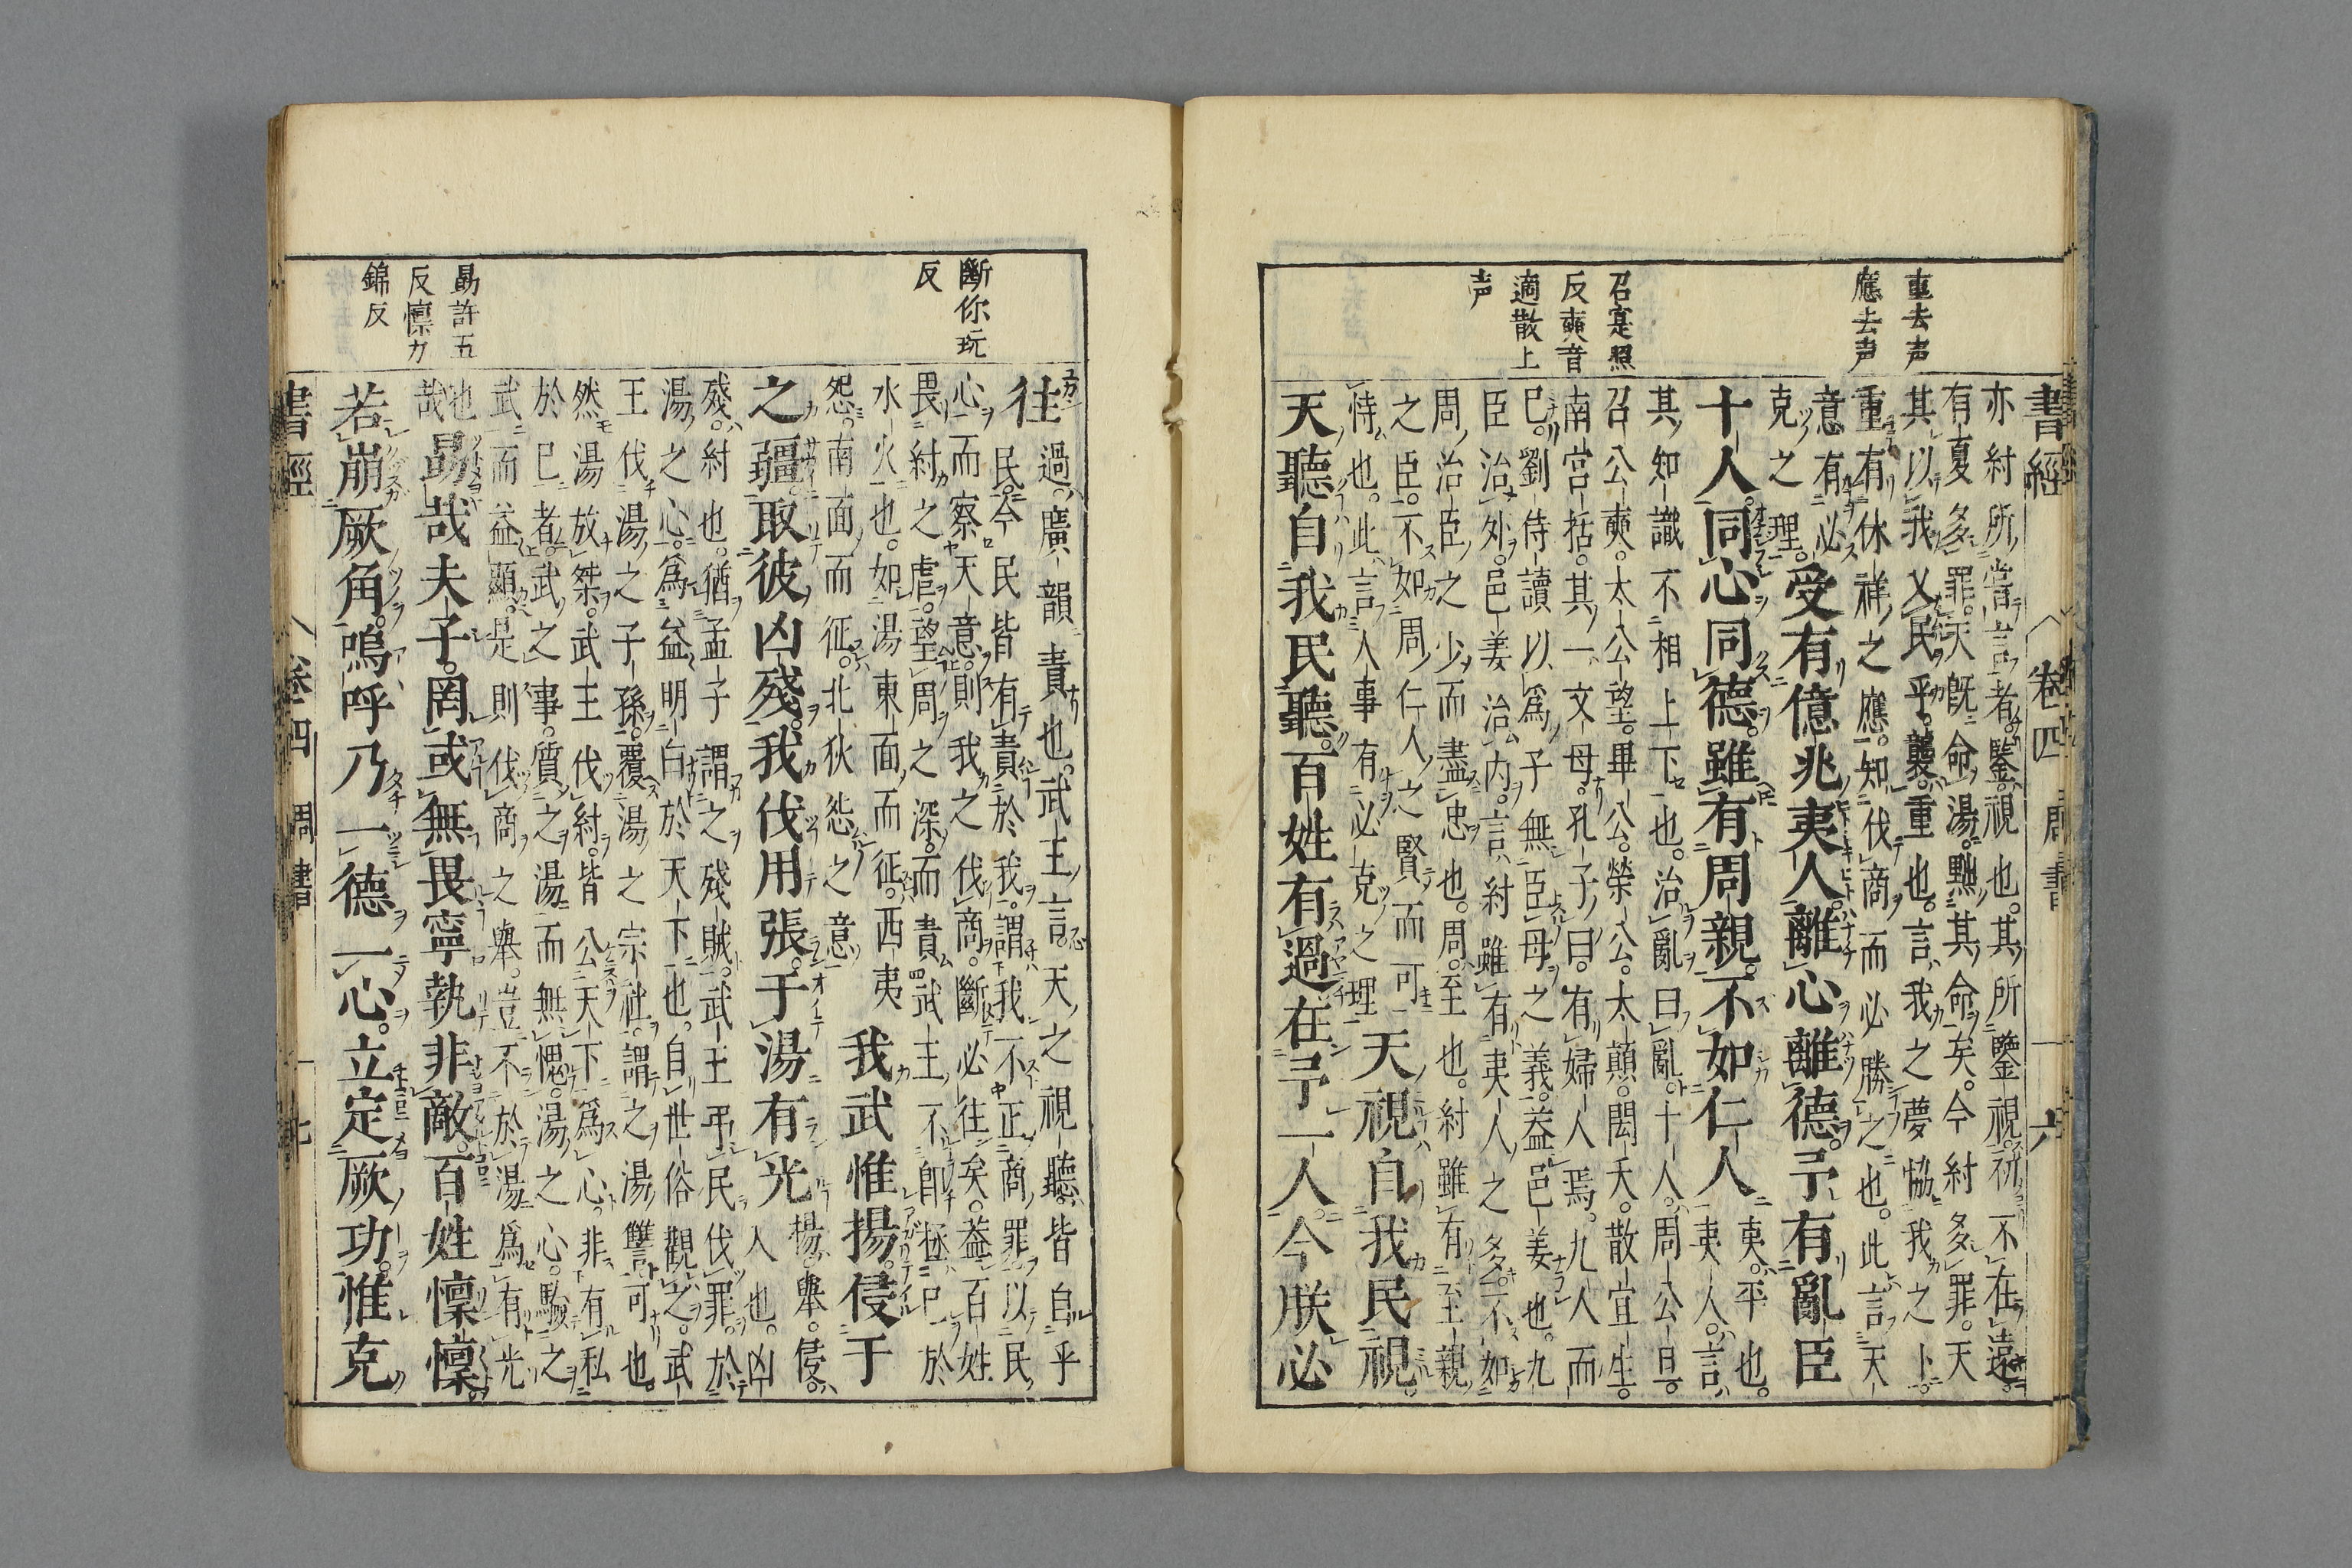 書經 卷四 周書 六
重去声
應去声
召寔照
反奭音
適散上
声
亦紂所嘗言者鑒視也其所鑒視初不在遠
有夏多罪天既命湯黜其命矣今紂多罪天
其以我乂民乎襲重也言我之夢協我之卜
重有休祥之應知伐商而必勝之也此言天
意有必
克之理。受有億兆夷人。離心離德。予有亂臣
十人。同心同德。雖有周親。不如仁人 夷平也。
夷人言
其知識不相上下也。治亂曰亂。十人周公旦
召公奭。太公望。畢公。榮公。太顛。閎夭。散宜生。
南宮括。其一文母。孔子曰。有婦人焉。九人而
已。劉侍讀以爲子無臣母之義。益邑姜也。九
臣治外。邑姜治内。言紂雖有夷人之多。不如
周治臣之少而盡忠也。周至也。紂雖有至親
之臣。不如周仁人之賢而可
恃也。此言人事有必克之理 天視自我民視。
天聽自我民聽。百姓有過在予一人。今朕必
斷你玩
反
勗許五
反懍力
錦反
往 過廣韻責也。武王言。天之視聽。皆自乎
民。今民皆有責於我。謂我不正商罪。以民
心而察天意。則我之伐商。斷必往矣。益百姓
畏紂之虐。望周之深。而責武王不卽拯己於
水火也。如湯東面而征。西夷
怨。南面而征。北狄怨之意 我武惟揚。侵于
之疆。取彼凶殘。我伐用張。于湯有光 揚舉。侵
入也。凶
殘。紂也。猶孟子謂之殘賊。武王弔民伐罪。於
湯之心。爲益明白於天下也。自世俗觀之。武
王伐湯之子孫。覆湯之宗社。謂之湯讐可也。
然湯放桀。武王伐紂。皆公天下爲心。非有私
於己者。武之事。質之湯而無愧。湯之心。驗之
武而益顯。是則伐商之舉。豈不於湯爲有光
也
哉 勗哉夫子。罔或無畏寧執非敵。百姓懍懍
若崩厥角。嗚呼乃一德一心。立定厥功。惟克
書經 卷四 周書 一 七